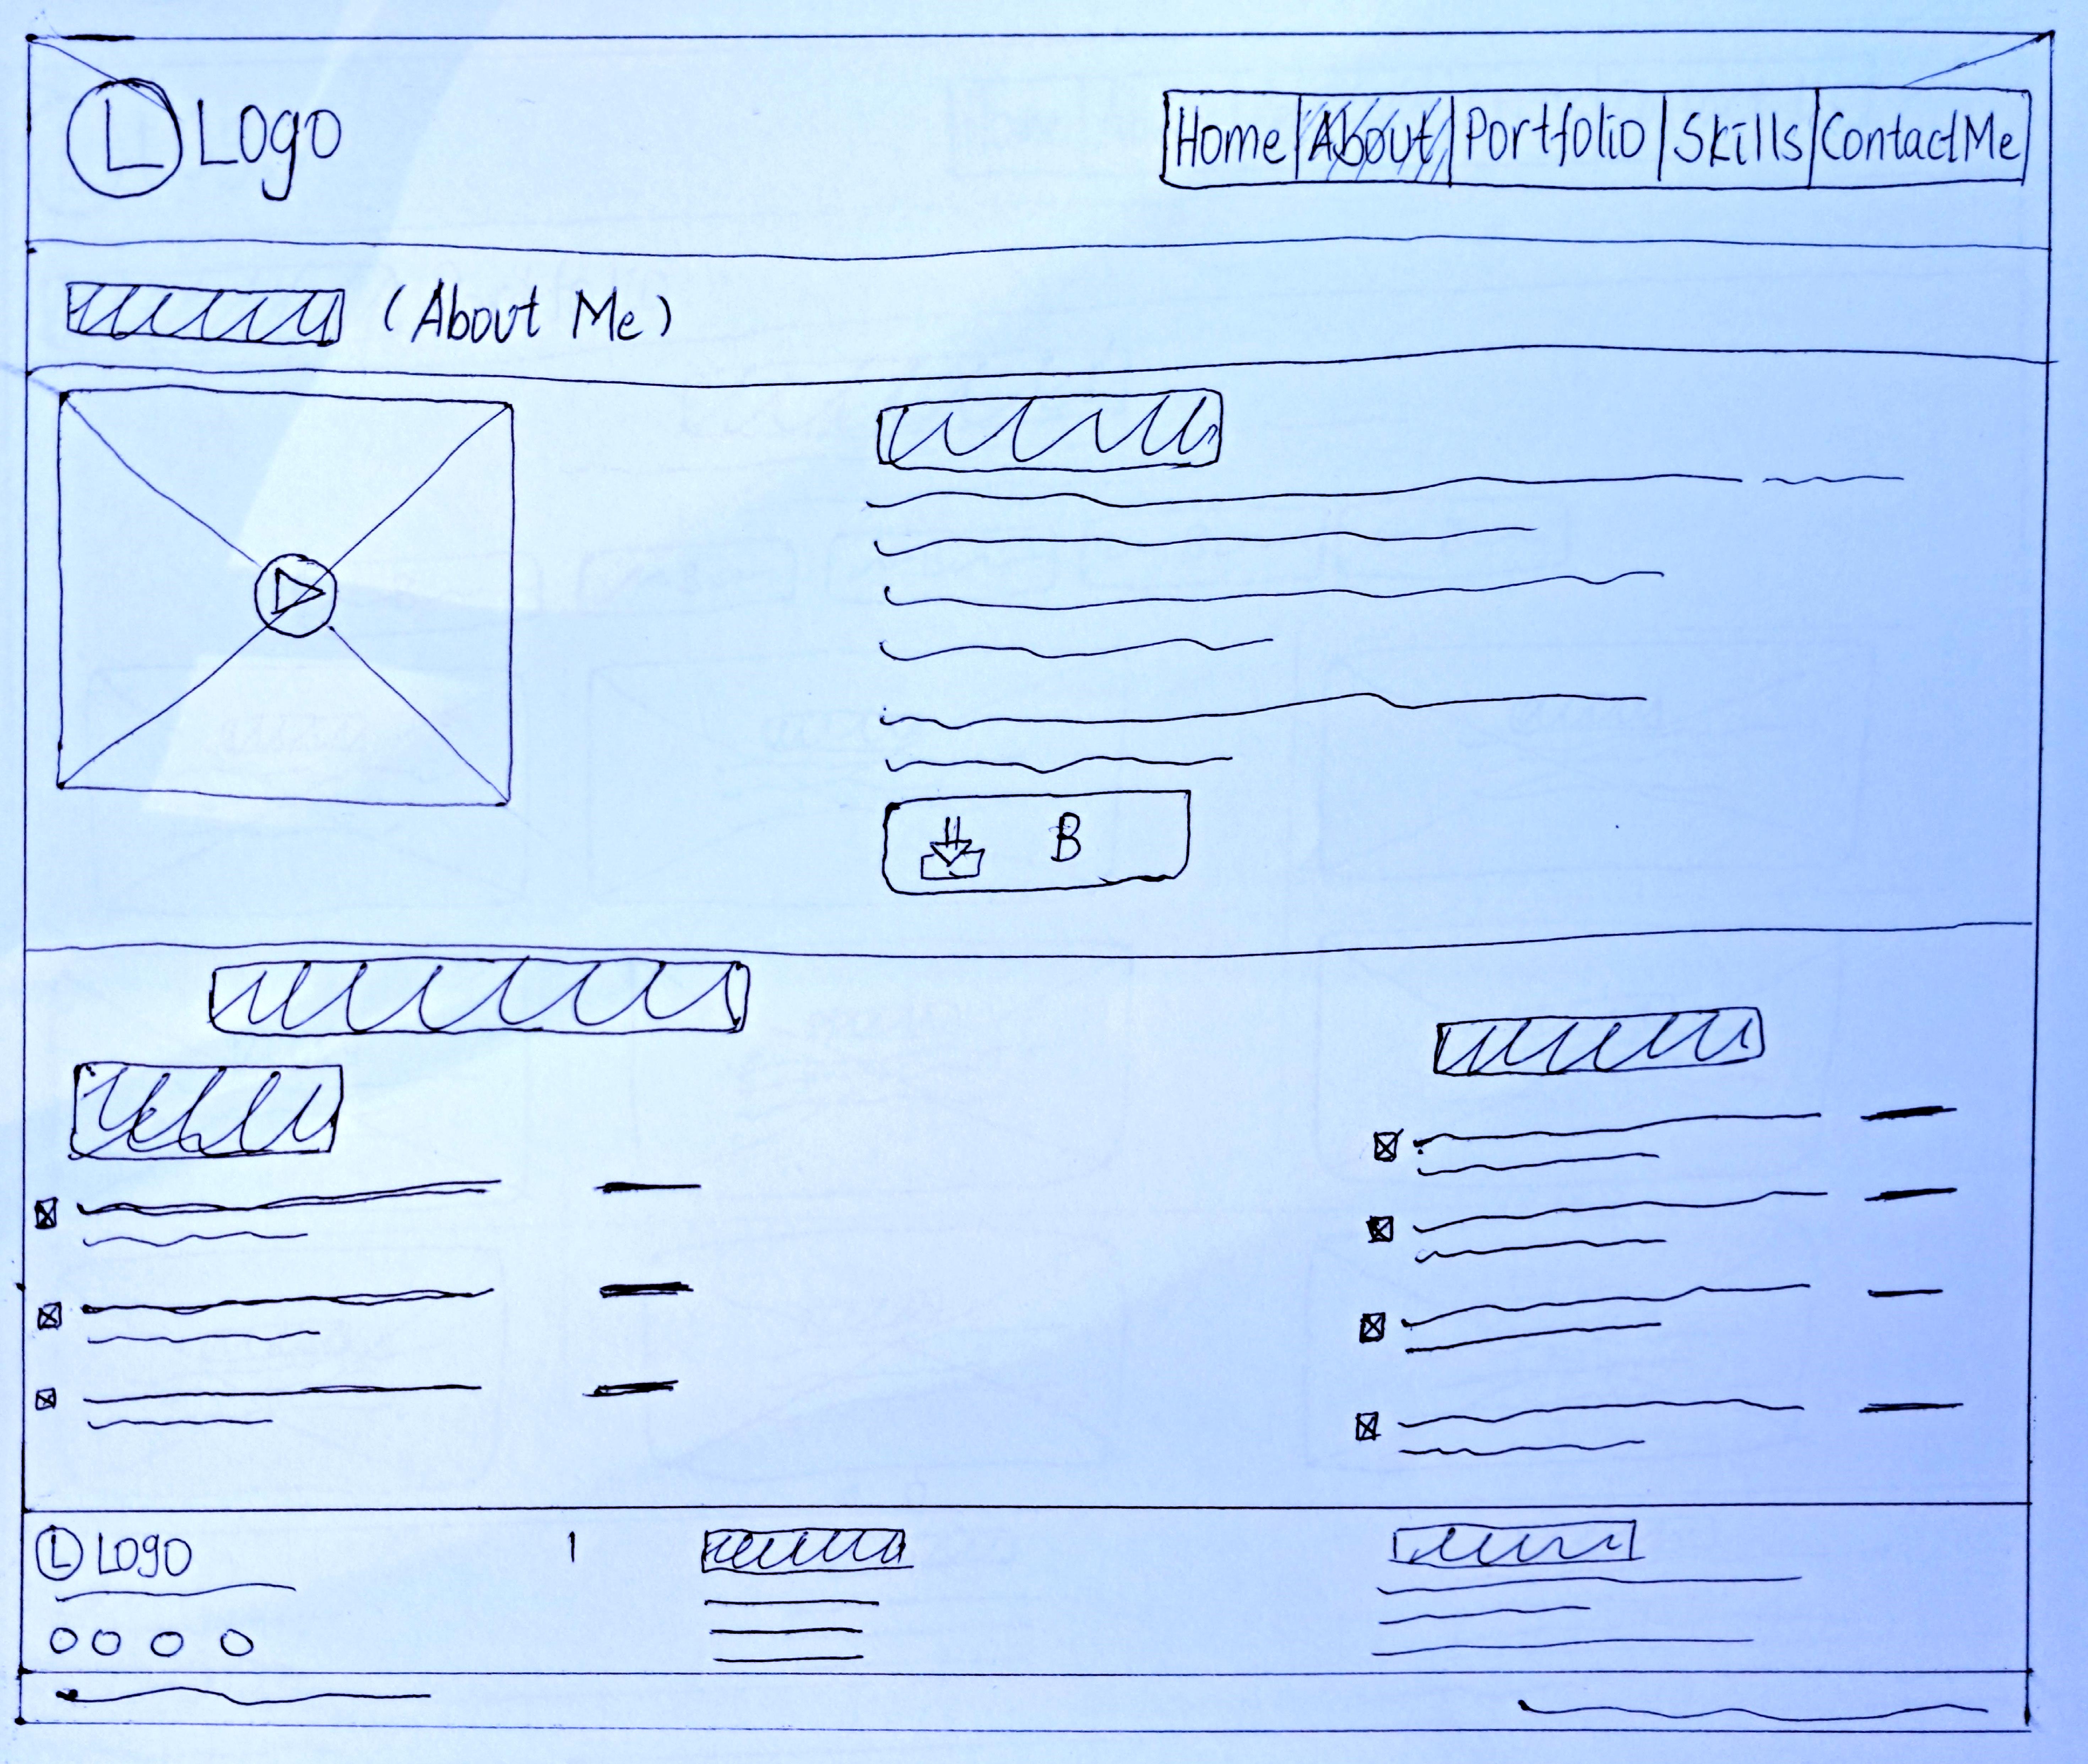 L Logo
Home About Portfolio Skills ContactMe
(About Me)
B
L LOGO